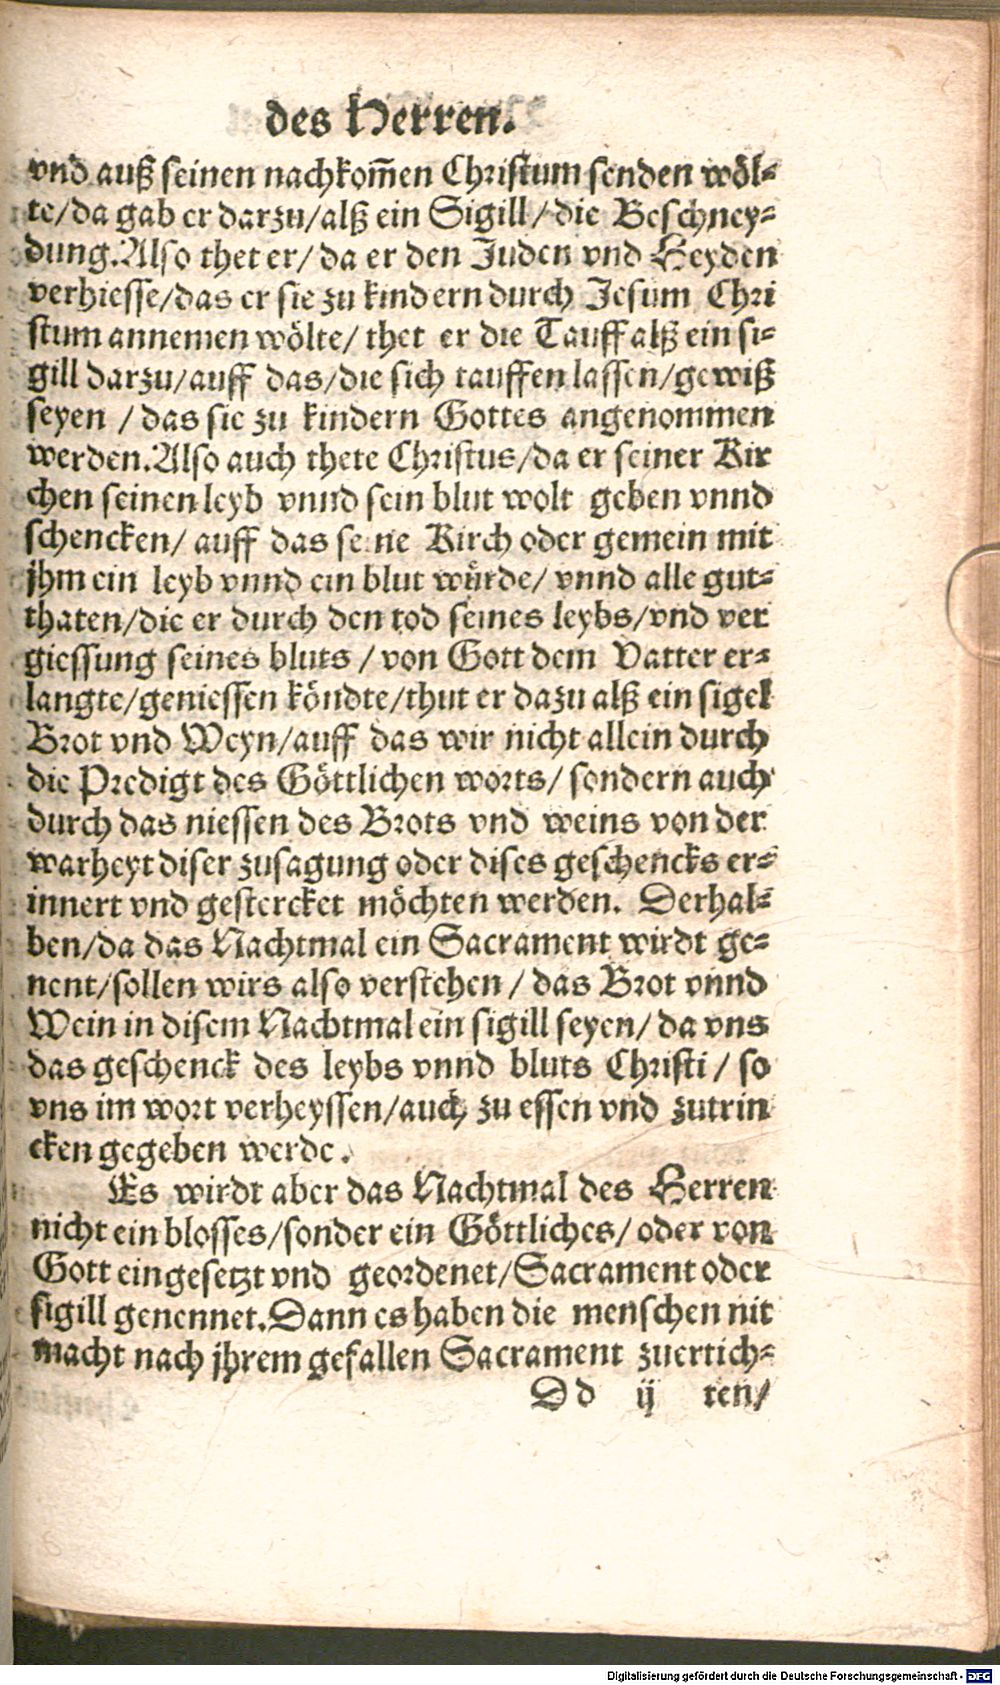 des Herren.
vnd auß seinen nachkom̄en Christum senden wöl-
te/da gab er darzu/alß ein Sigill/die Beschney-
dung. Also thet er/ da er den Juden vnd Heyden
verhiesse/das er sie zu kindern durch Jesum Chri
stum annemen wölte/ thet er die Tauff alß ein si-
gill darzu/auff das/die sich tauffen lassen/gewiß
seyen / das sie zu kindern Gottes angenommen
werden. Also auch thete Christus/da er seiner Kir
chen seinen leyb vnnd sein blut wolt geben vnnd
schencken/ auff das seine Kirch oder gemein mit
jhm ein leyb vnnd ein blut würde/ vnnd alle gut-
thaten/die er durch den tod seines leybs/vnd ver
giessung seines bluts / von Gott dem Vatter er-
langte/geniessen köndte/thut er dazu alß ein sigel
Brot vnd Weyn/auff das wir nicht allein durch
die Predigt des Göttlichen worts/ sondern auch
durch das niessen des Brots vnd weins von der
warheyt diser zusagung oder dises geschencks er-
innert vnd gestercket möchten werden. Derhal-
ben/da das Nachtmal ein Sacrament wirdt ge-
nent/sollen wirs also verstehen / das Brot vnnd
Wein in disem Nachtmal ein sigill seyen/ da vns
das geschenck des leybs vnnd bluts Christi / so
vns im wort verheyssen/auch zu essen vnd zutrin
cken gegeben werde.
Es wirdt aber das Nachtmal des Herren
nicht ein blosses/sonder ein Göttliches/ oder von
Gott eingesetzt vnd geordenet/Sacrament oder
sigill genennet. Dann es haben die menschen nit
macht nach jhrem gefallen Sacrament zuertich-
Dd ij ten/
Digitalisierung gefördert durch die Deutsche Forschungsgemeinschaft - DFG